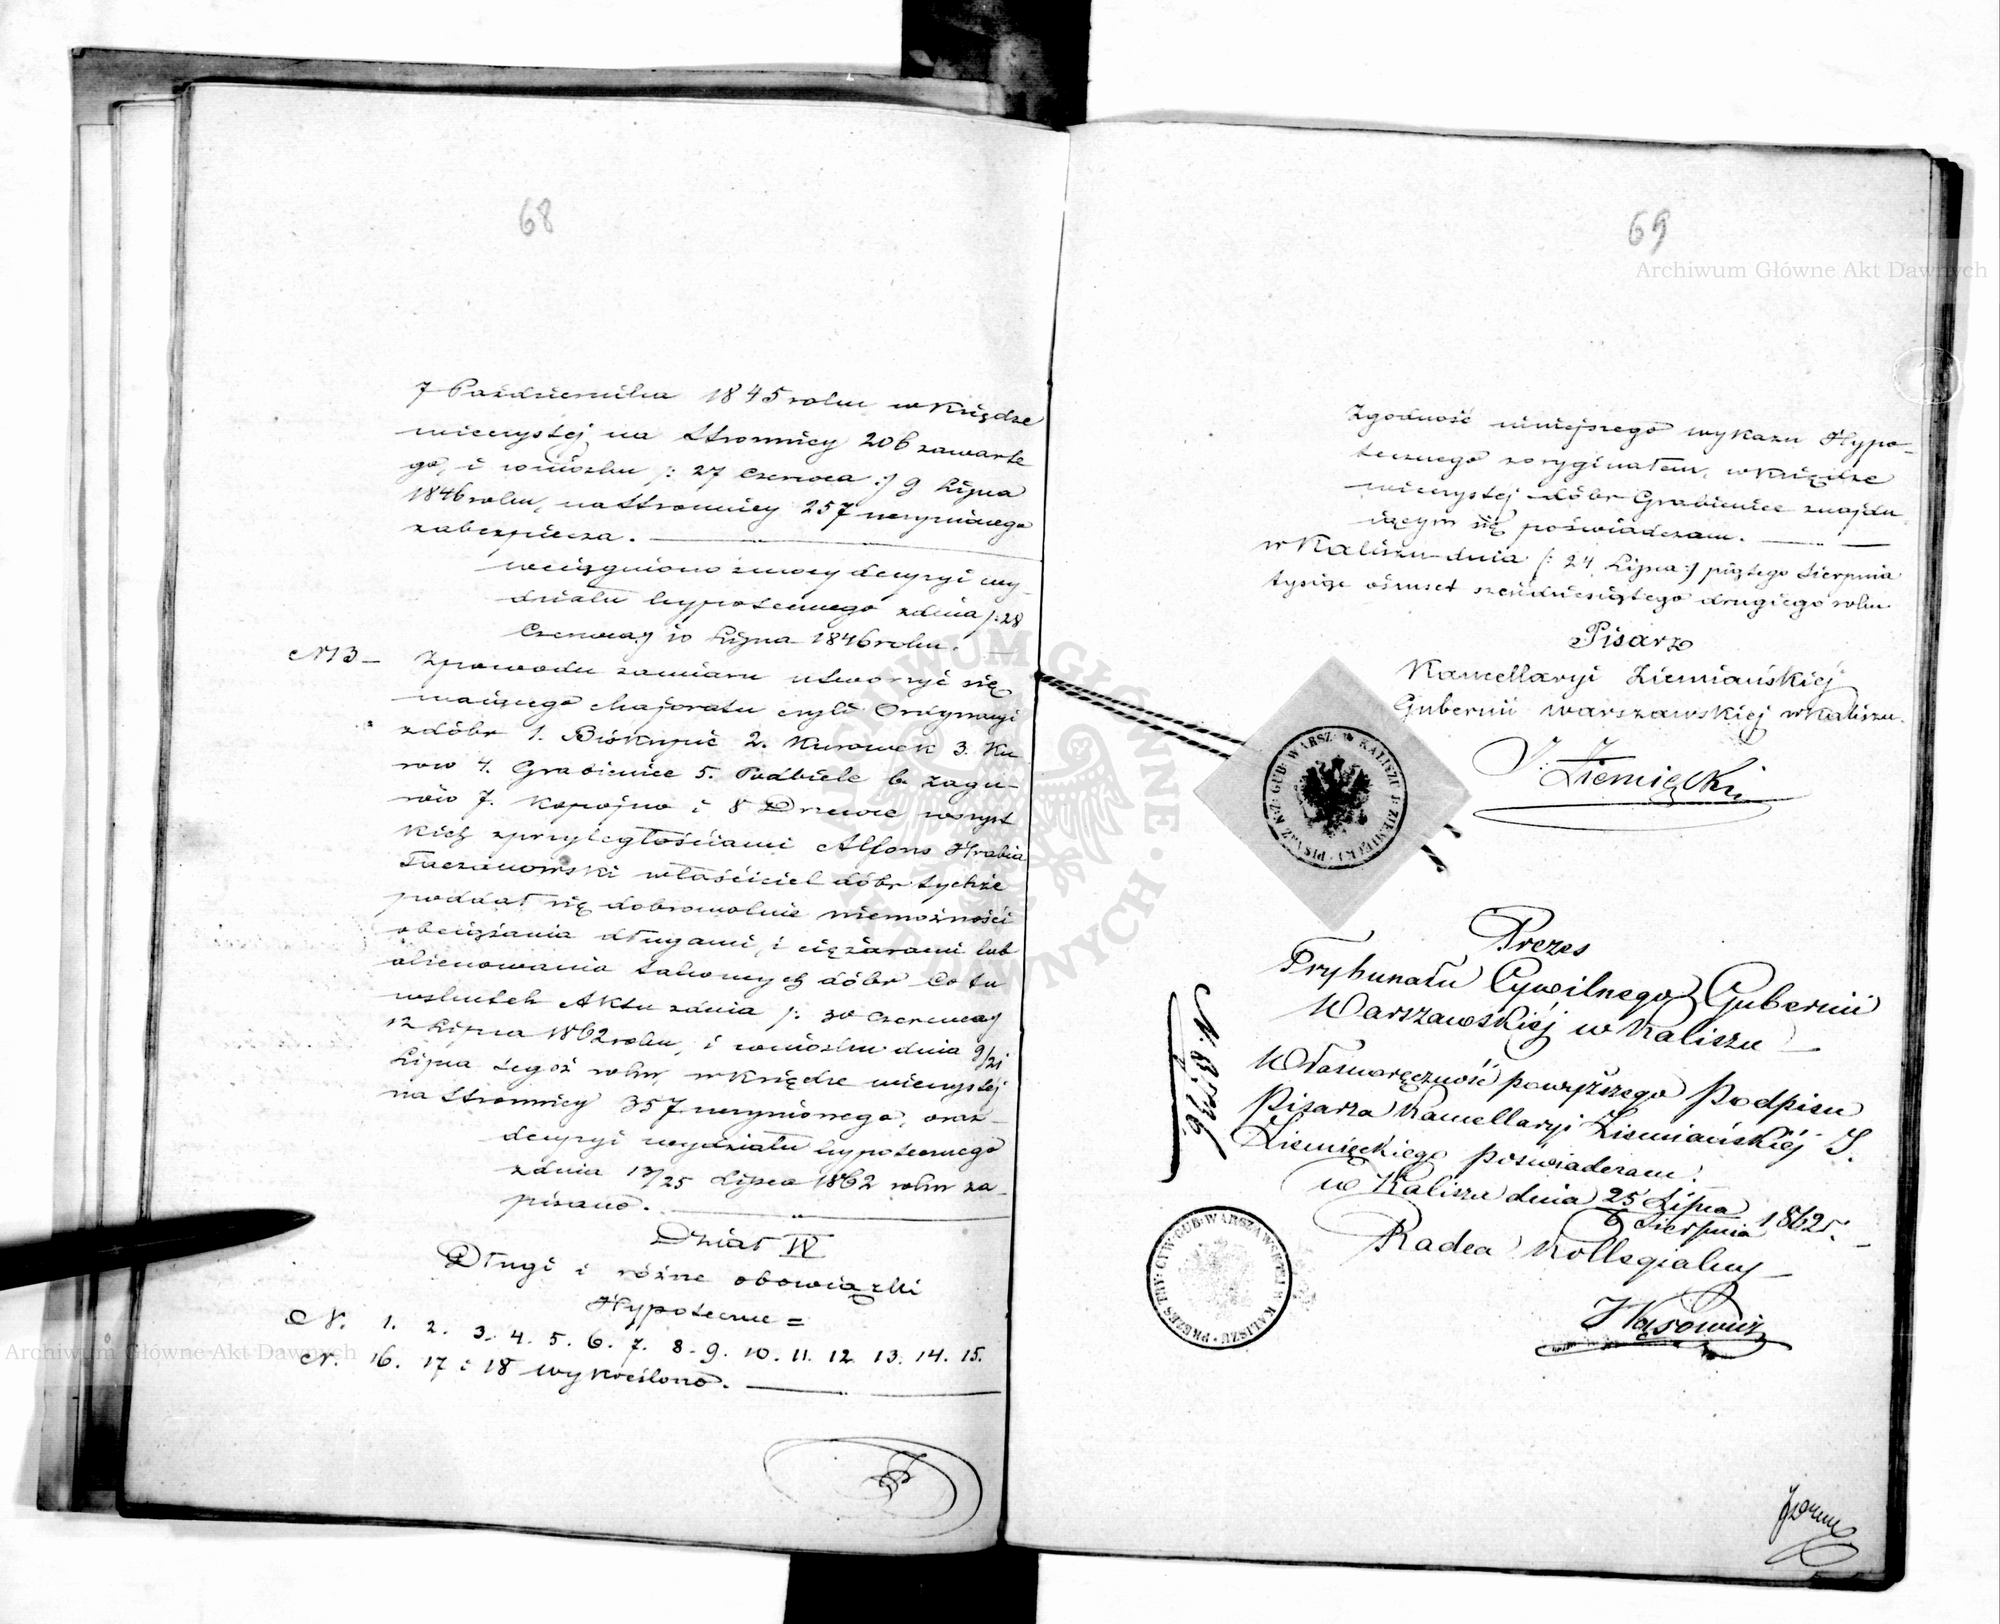 68
7 Października 1845 roku w Księdze
wieczystej na Stronnicy 206 zawarte
go, i wniosku /: 27 Czerwca :/ 9 Lipca
1846 roku, na Stronnicy 257 uczynionego
zabezpiecza.
wciągniono z mocy decyzyi wy-
działu hypotecznego z dnia /: 28
Czerwca :/ 10 Lipca 1846 roku.
N 13 – Z powodu zamiaru utworzyć się
maiącego Majoratu czyli Ordynacyi
z dóbr 1. Biskupie 2. Kurowek 3. Ku
row 4. Grabienice 5. Podbiele 6. Zagu-
rów 7. Kopojno i 8 Drzewce wszyst
kich z przyległościami Alfons Hrabia
Taczanowski właściciel dóbr tychże
poddał się dobrowolnie niemożności
obciążania długami, i ciężarami lub
alienowania takowych dóbr Co tu
wskutek Aktu z dnia /: 30 Czerwca :/
12 Lipca 1862 roku, i wniosku dnia 9/21
Lipca tegoż roku, w Księdze wieczystej
na Stronnicy 357 uczynionego, oraz
decyzyi wydziału hypotecznego
z dnia 13/25 Lipca 1862 roku za-
pisano.
Dział IV
Długi i różne obowiązki
Hypoteczne =
N. 1. 2. 3. 4. 5. 6. 7. 8. 9. 10. 11. 12. 13. 14. 15.
N. 16. 17 i 18 wykreślono.
69
Zgodność niniejszego wykazu Hypo-
tecznego z oryginałem, w Księdze
wieczystej dóbr Grabienice znajdu
iącym się poświadczam.
w Kaliszu dnia /: 24 Lipca :/ piątego Sierpnia
tysiąc ośmset sześćdziesiątego drugiego roku
Pisarz
Kancellaryi Ziemiańskiej
Gubernii Warszawskiej w Kaliszu.
J. Ziemięcki
PISARZ KZ: GUB: WARSZ: W KALISZU J: ZIEMIĘCKI
Prezes
Trybunału Cywilnego Gubernii
Warszawskiéj w Kaliszu
Własnoręczność powyższego Podpisu
Pisarza Kancellaryi Ziemiańskiéj J.
Ziemięckiego poświadczam.
w Kaliszu dnia 25 Lipca
6 Sierpnia 1862 r.
Radca Kollegialny
N. 8526
PREZES TRY: CYW: GUB: WARSZAWSKIEJ W KALISZU
Archiwum Główne Akt Dawnych
Archiwum Główne Akt Dawnych
ARCHIWUM GŁÓWNE AKT DAWNYCH